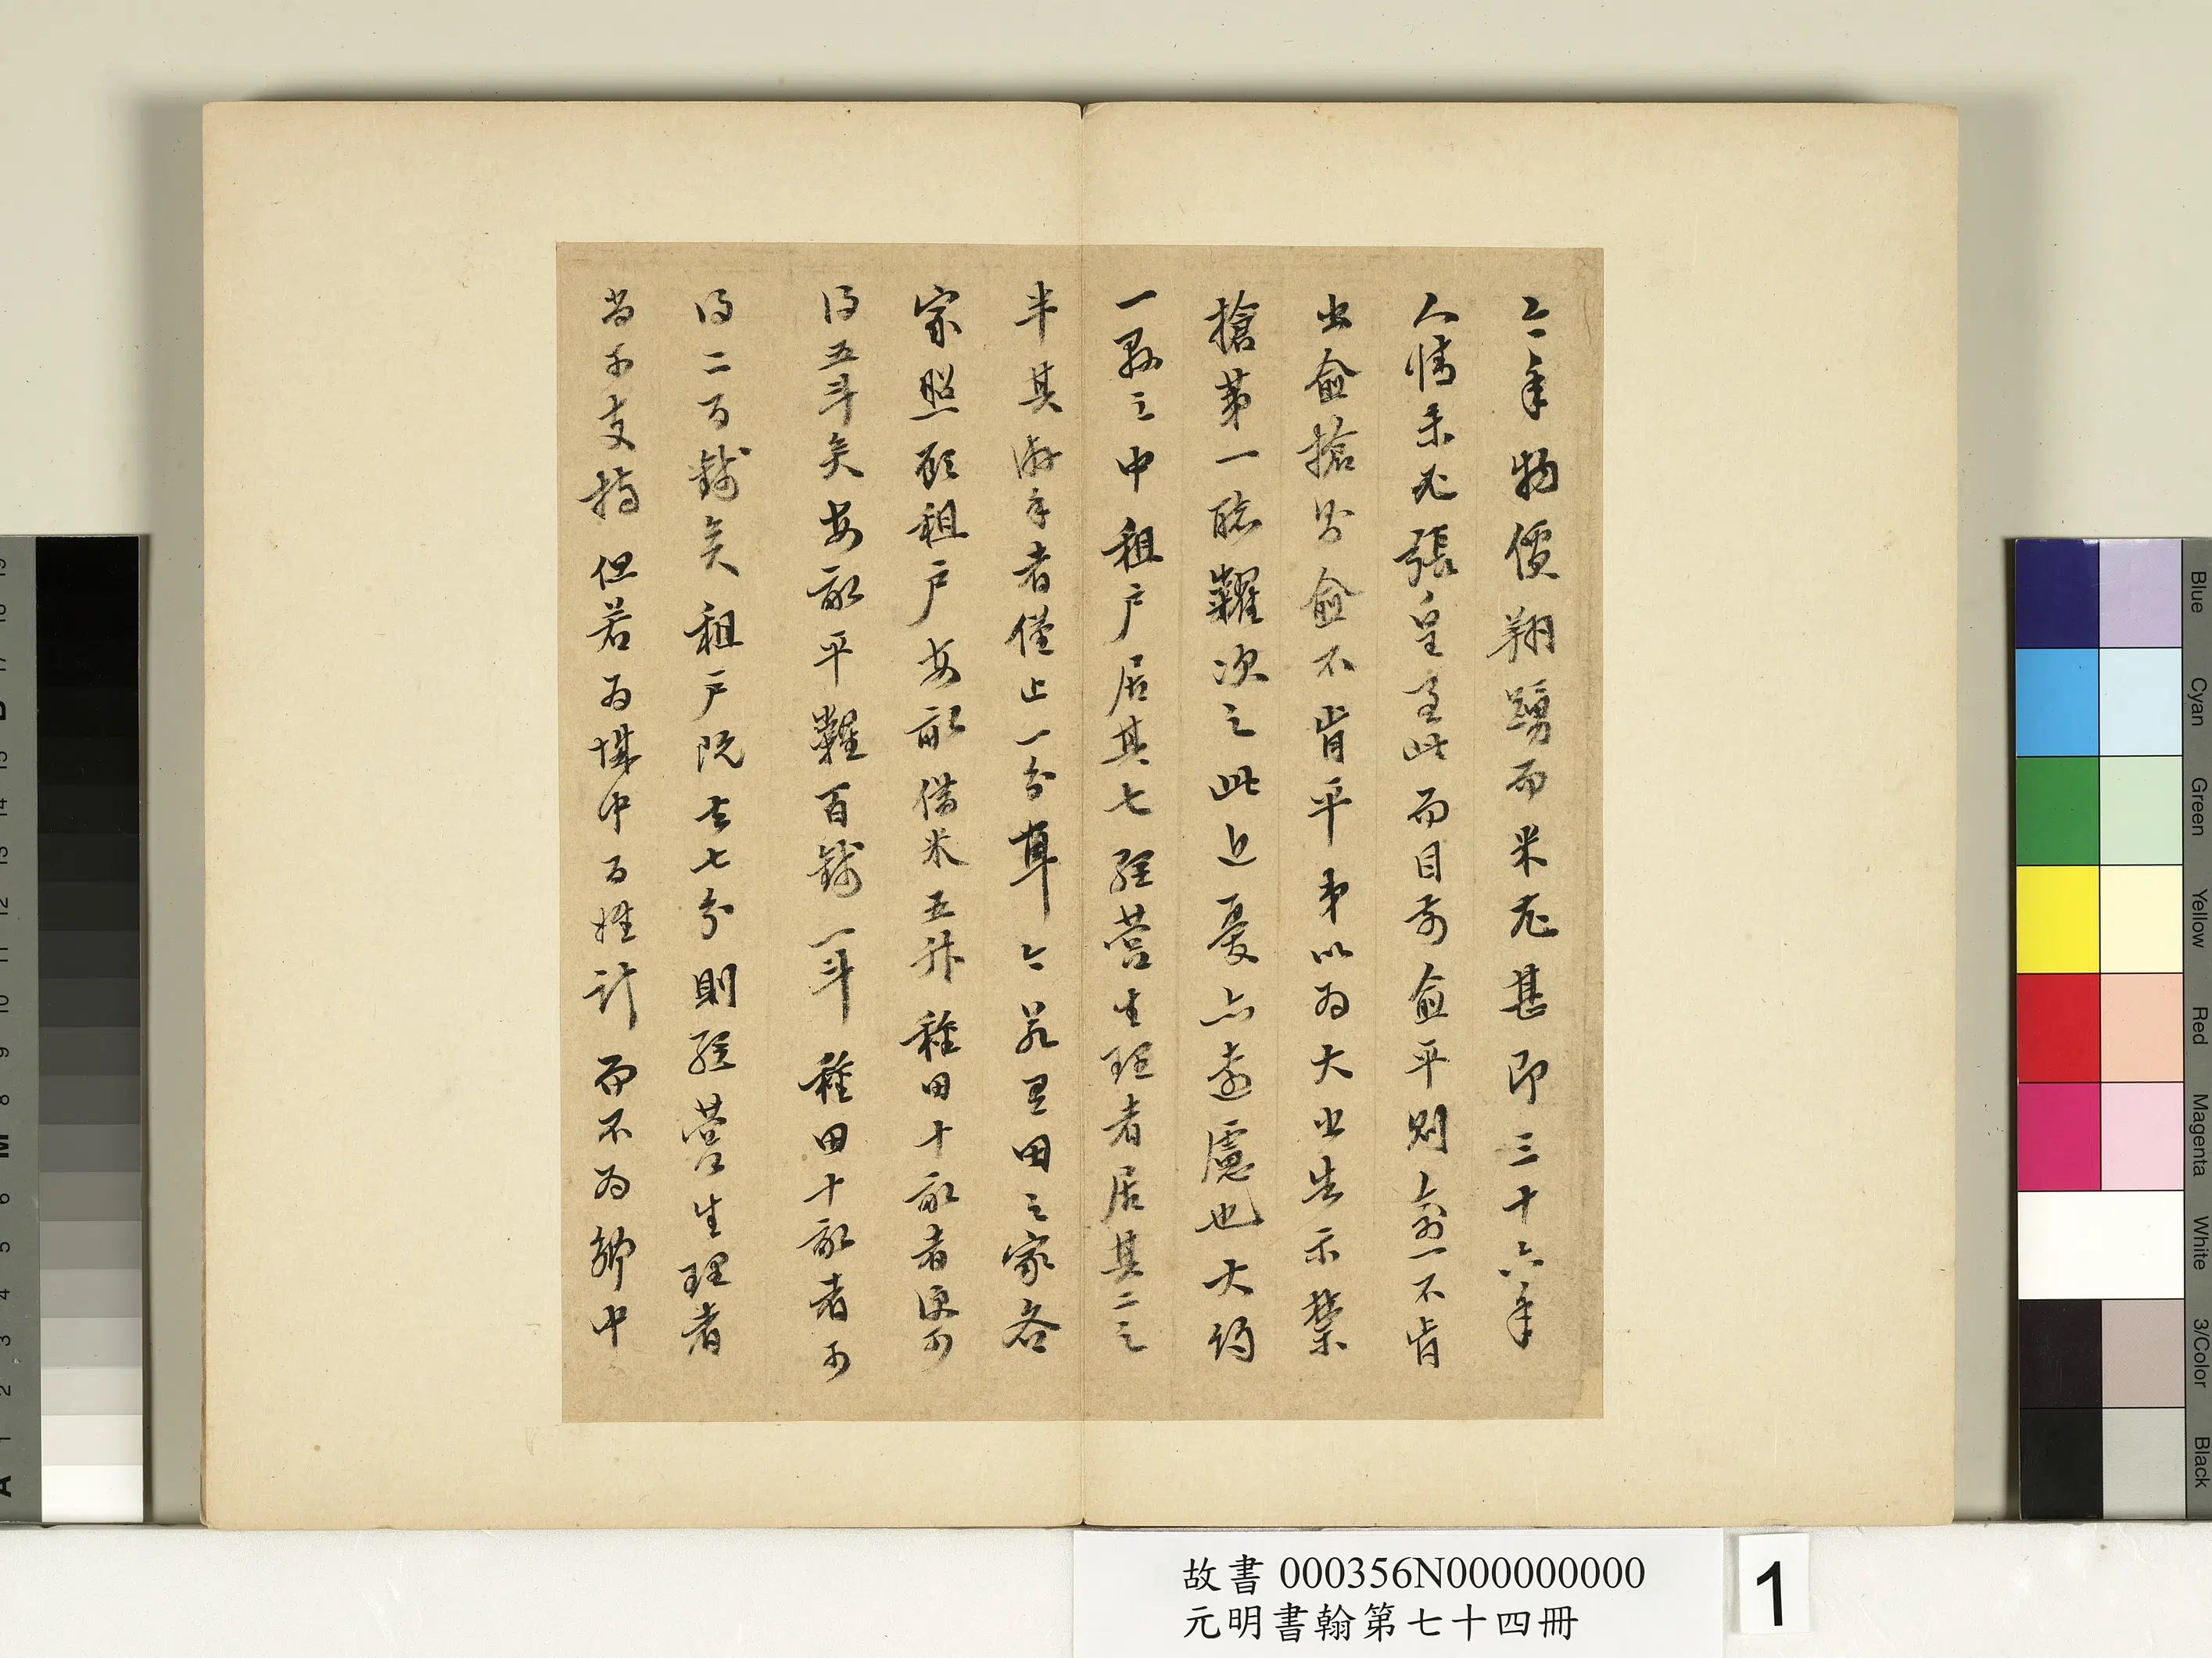 今年物價翔踴而米尤甚即三十六年
人情未張皇至此而目前愈平則愈不肯
出愈搶則愈不肯平弟以為大出告示禁
搶第一聽糶次之此近憂亦遠慮也大約
一縣之中租戶居其七經營生理者居其二之
半其游手者僅止一分耳今若里田之家各
家照顧租戶每畝借米五升種田十畝者便可
得五斗矣每畝平糶百錢一斗種田十畝者可
得二百錢矣租戶既去七分則經營生理者
當可支持但若為城中百姓計而不為鄉中
故書 000356N000000000
元明書翰第七十四冊
1
Blue
Cyan
Green
Yellow
Red
Magenta
White
3/Color
Black